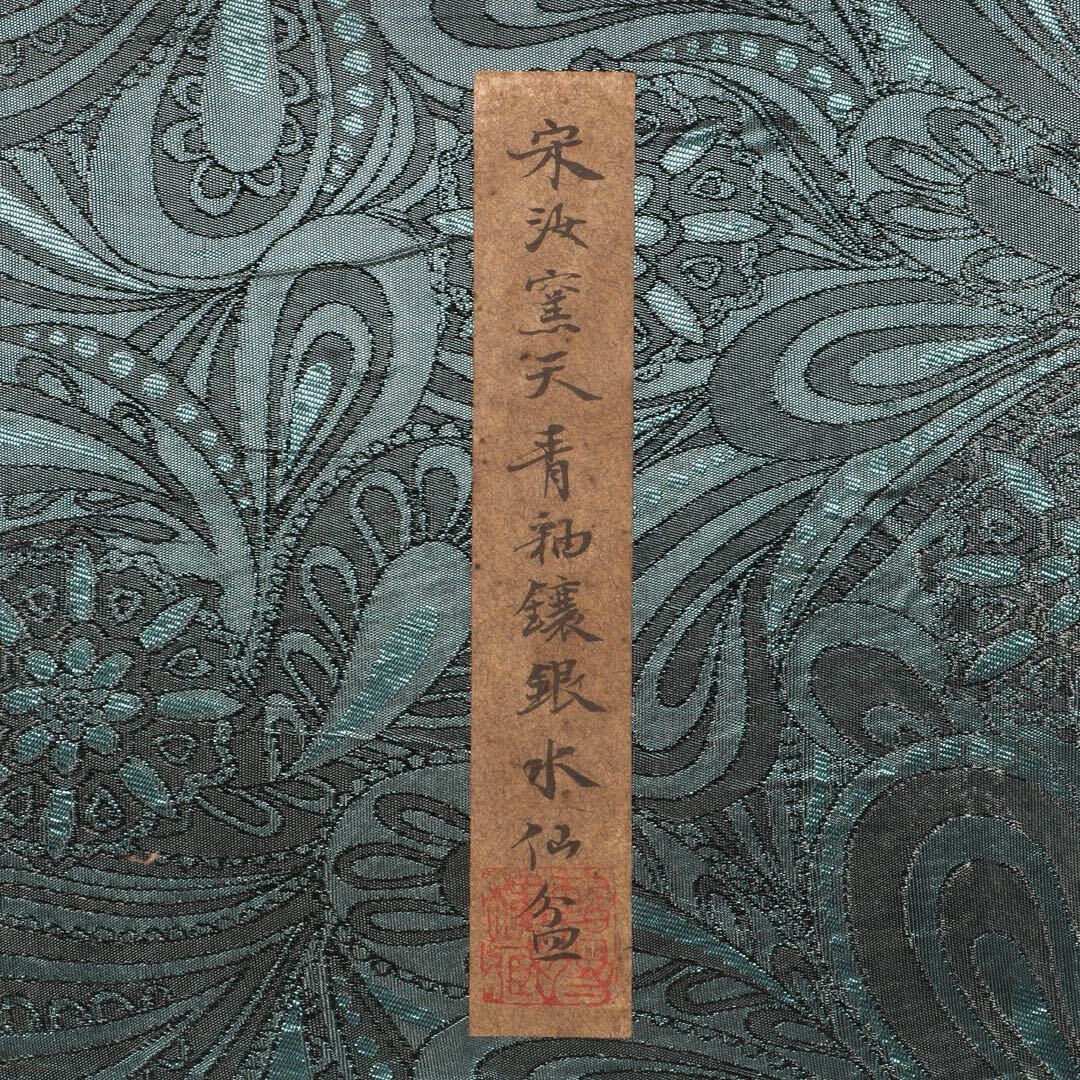 宋汝窯天青釉鑲銀水仙盆